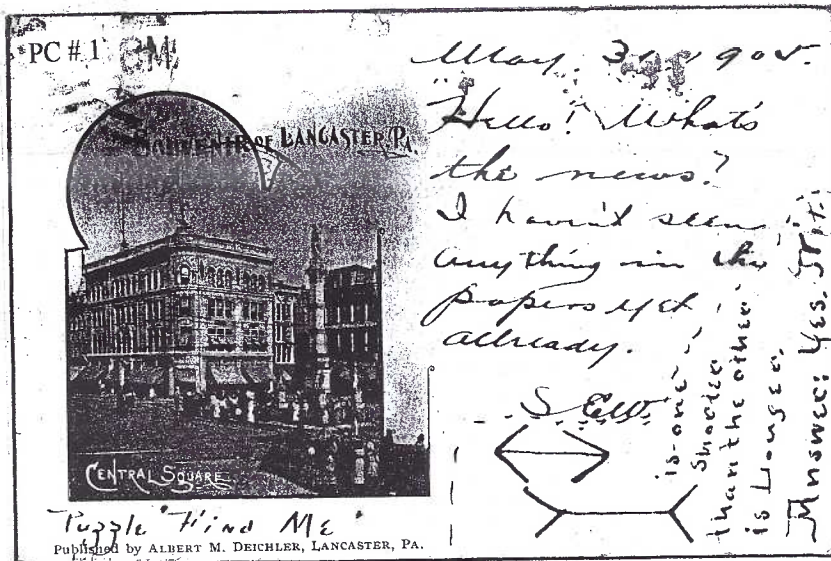 PC # 1
SOUVENIR OF LANCASTER, PA.
CENTRAL SQUARE
Puzzle "Find Me"
Published by ALBERT M. DEICHLER, LANCASTER, PA.
May. 31, 1905.
"Hello! What's
the news?
I haven't seen
anything in the
papers yet
allready.
S EW
is one
Shorter
than the other
is Longer
Answer: Yes.